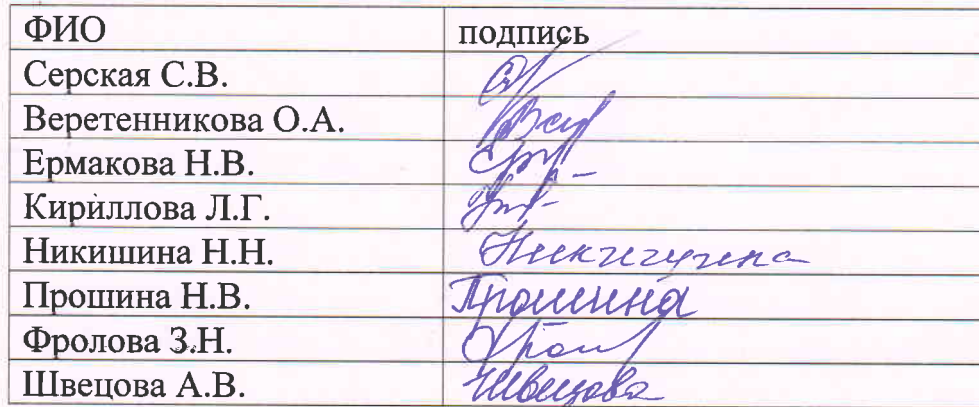 ФИО подпись
Серская С.В.
Веретенникова О.А.
Ермакова Н.В.
Кириллова Л.Г.
Никишина Н.Н. Никишина
Прошина Н.В. Прошина
Фролова З.Н.
Швецова А.В. Швецова